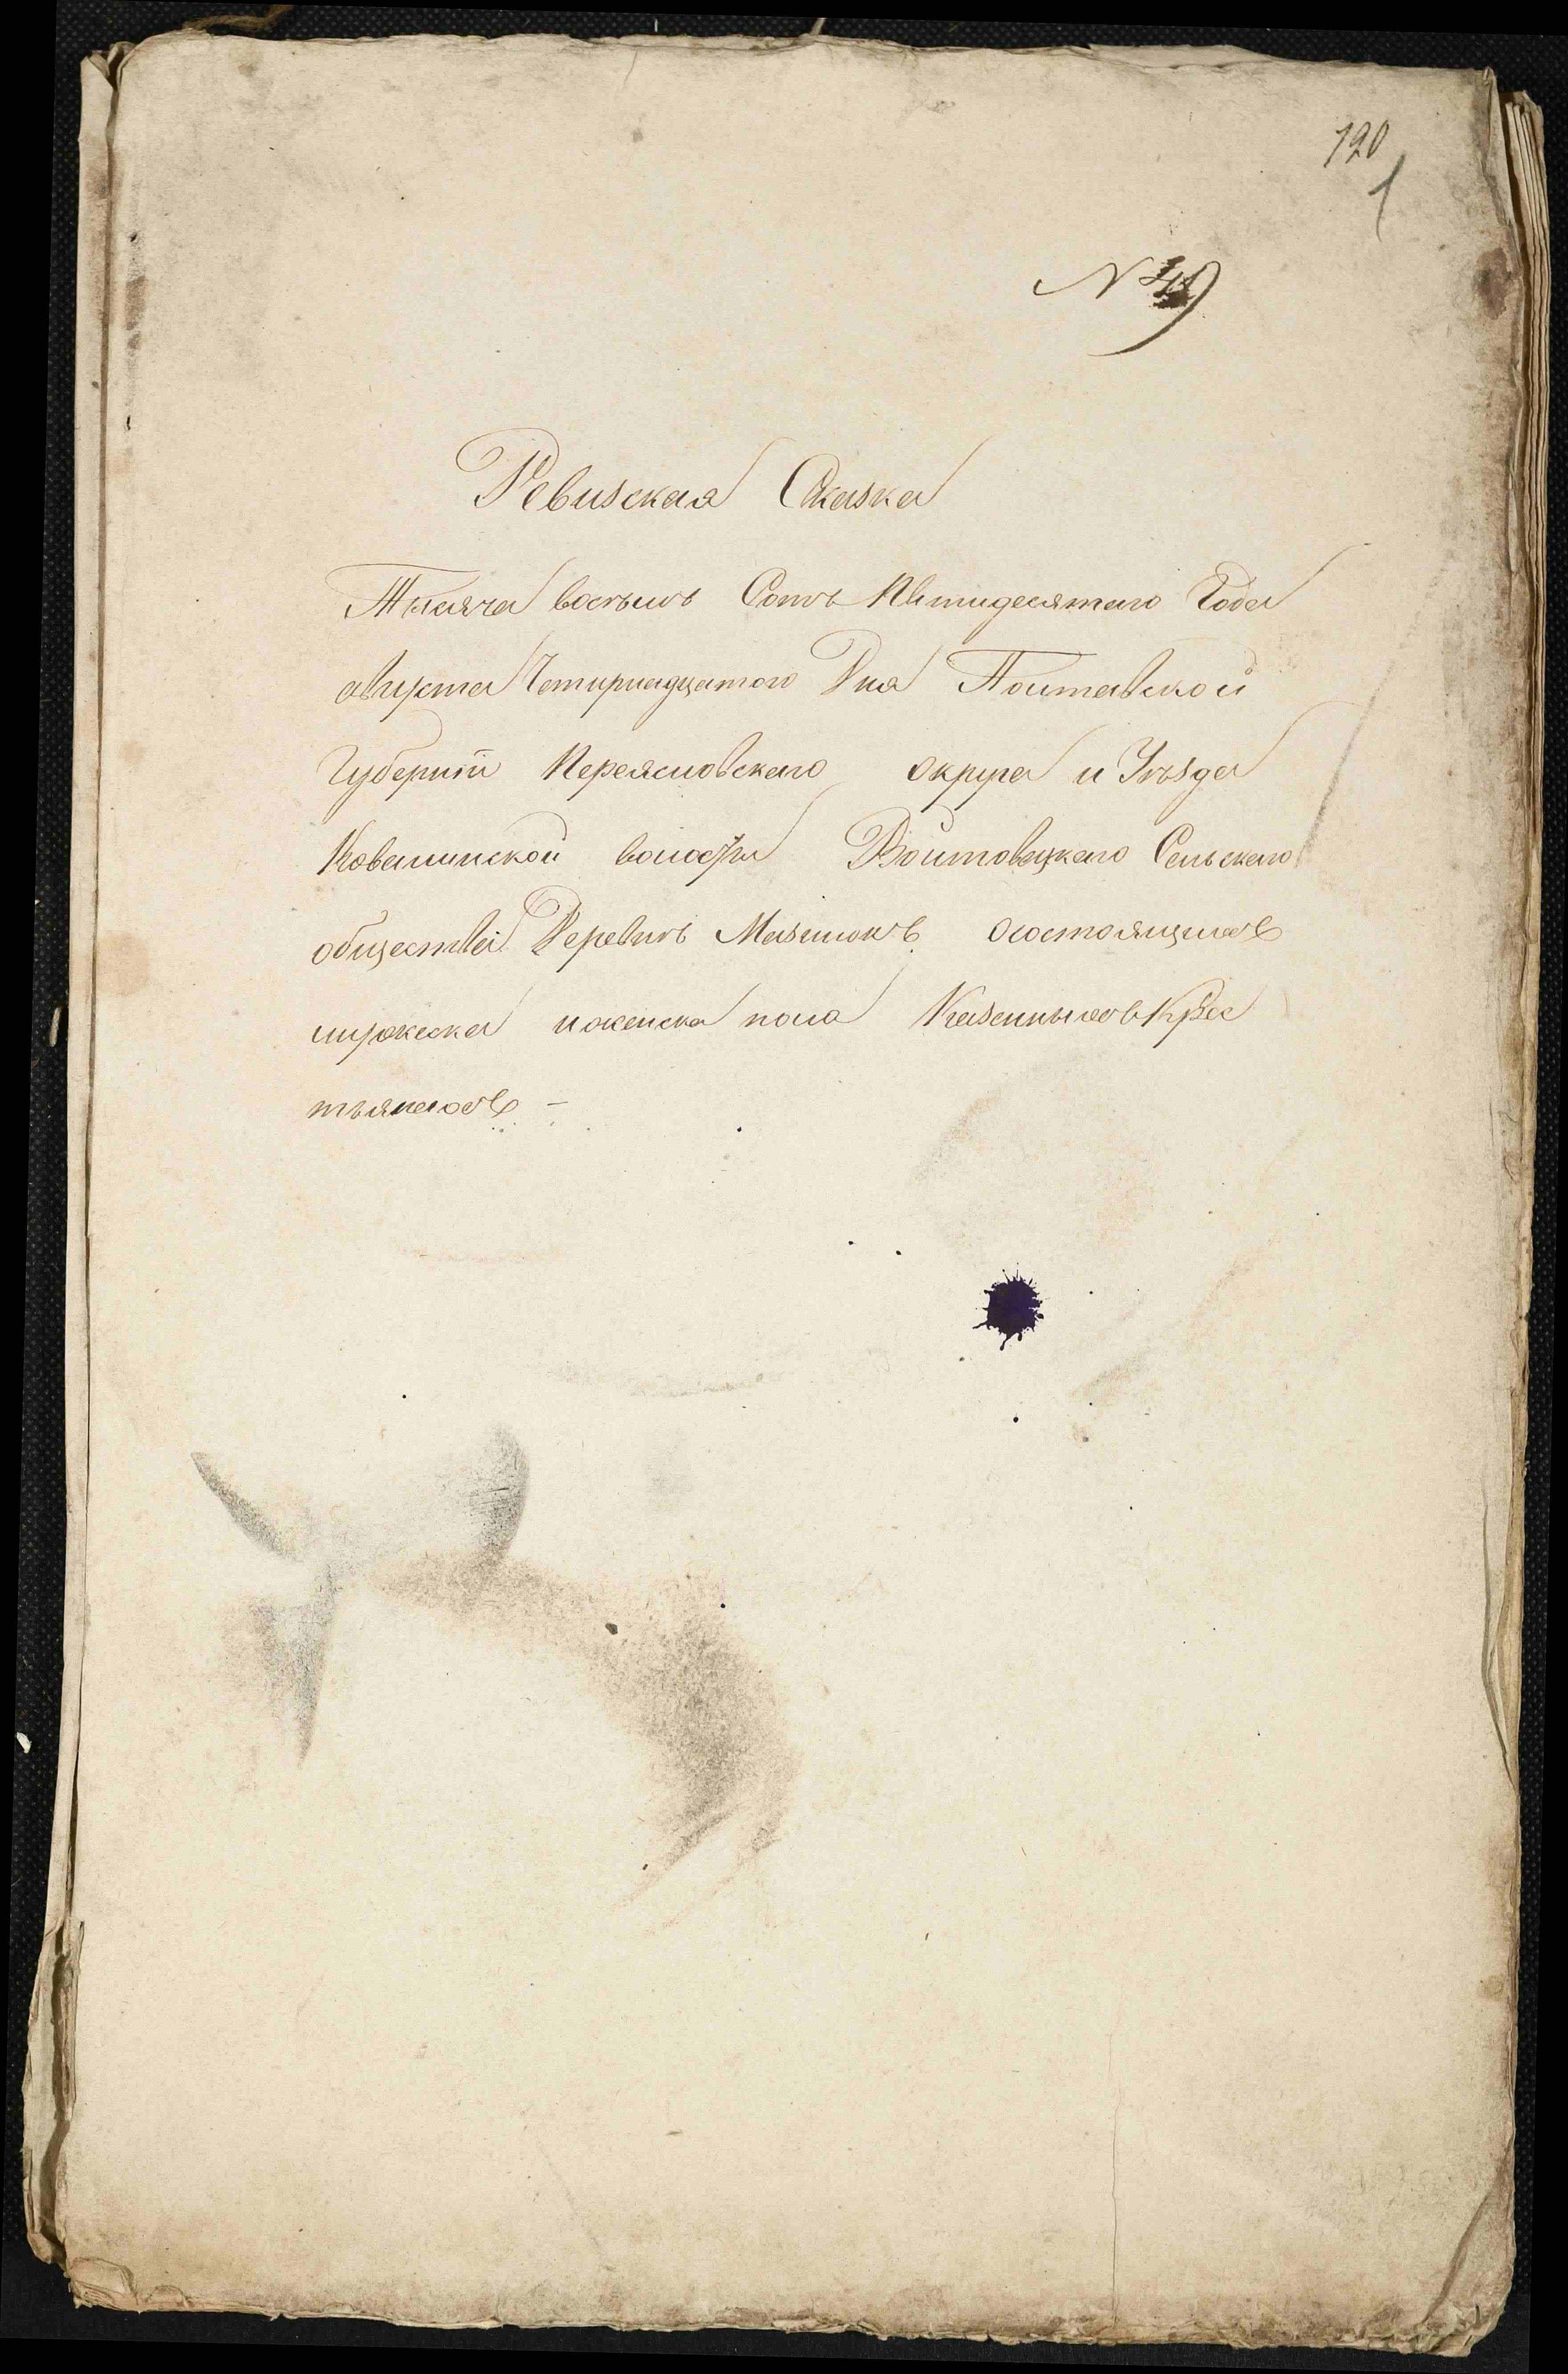 120
1
N 49
Ревизская Сказка
Тысяча восемь Сотъ Пятидесятаго Года
августа Четирнадцатого Дня Полтавской
Губернiи Переясловскаго округа и Уезда
Ковалинской волости Войтовецкаго Сельскаго
общества Деревнъ Мазинокъ Осостоящихъ
мужеска иженска пола Казенныхъ Крес
тьянахъ -